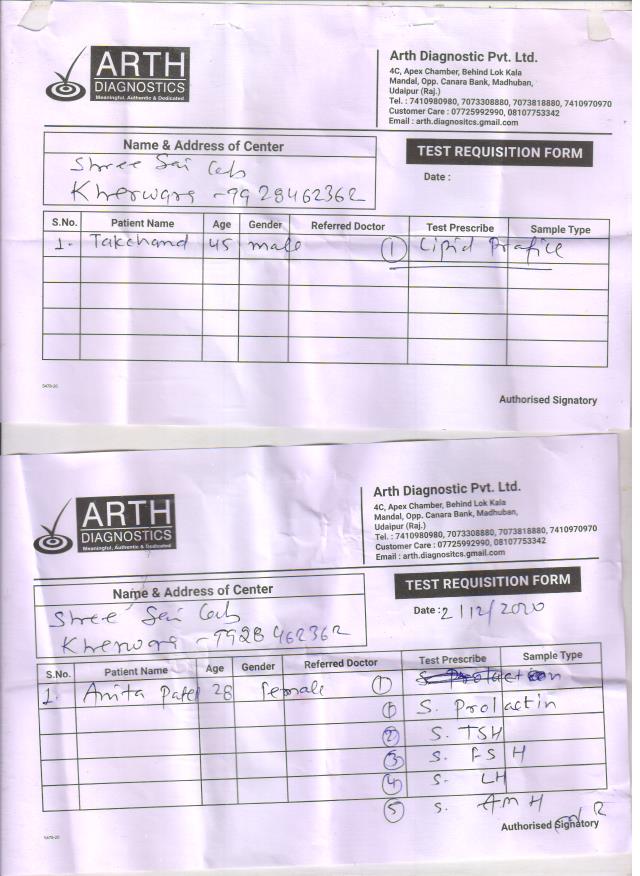 ARTH
DIAGNOSTICS
Meaningful, Authentic & Dedicated
Arth Diagnostic Pvt. Ltd.
4C, Apex Chamber, Behind Lok Kala
Mandal, Opp. Canara Bank, Madhuban,
Udaipur (Raj.)
Tel. : 7410980980, 7073308880, 7073818880, 7410970970
Customer Care : 07725992990, 08107753342
Email : arth.diagnositcs.gmail.com
Name & Address of Center
Shree Sai Lab
Kherwara -9928462362
TEST REQUISITION FORM
Date :
S.No. Patient Name Age Gender Referred Doctor Test Prescribe Sample Type
1. Takchand 45 male ① Lipid Profile
5478-20
Authorised Signatory
ARTH
DIAGNOSTICS
Meaningful, Authentic & Dedicated
Arth Diagnostic Pvt. Ltd.
4C, Apex Chamber, Behind Lok Kala
Mandal, Opp. Canara Bank, Madhuban,
Udaipur (Raj.)
Tel. : 7410980980, 7073308880, 7073818880, 7410970970
Customer Care : 07725992990, 08107753342
Email : arth.diagnositcs.gmail.com
Name & Address of Center
Shree Sai Lab
Kherwara -9928462362
TEST REQUISITION FORM
Date : 2/12/2020
S.No. Patient Name Age Gender Referred Doctor Test Prescribe Sample Type
1. Anita Patel 28 female ①
① S. Prolactin
② S. TSH
③ S. FSH
④ S. LH
⑤ S. AMH
Authorised Signatory
5478-20